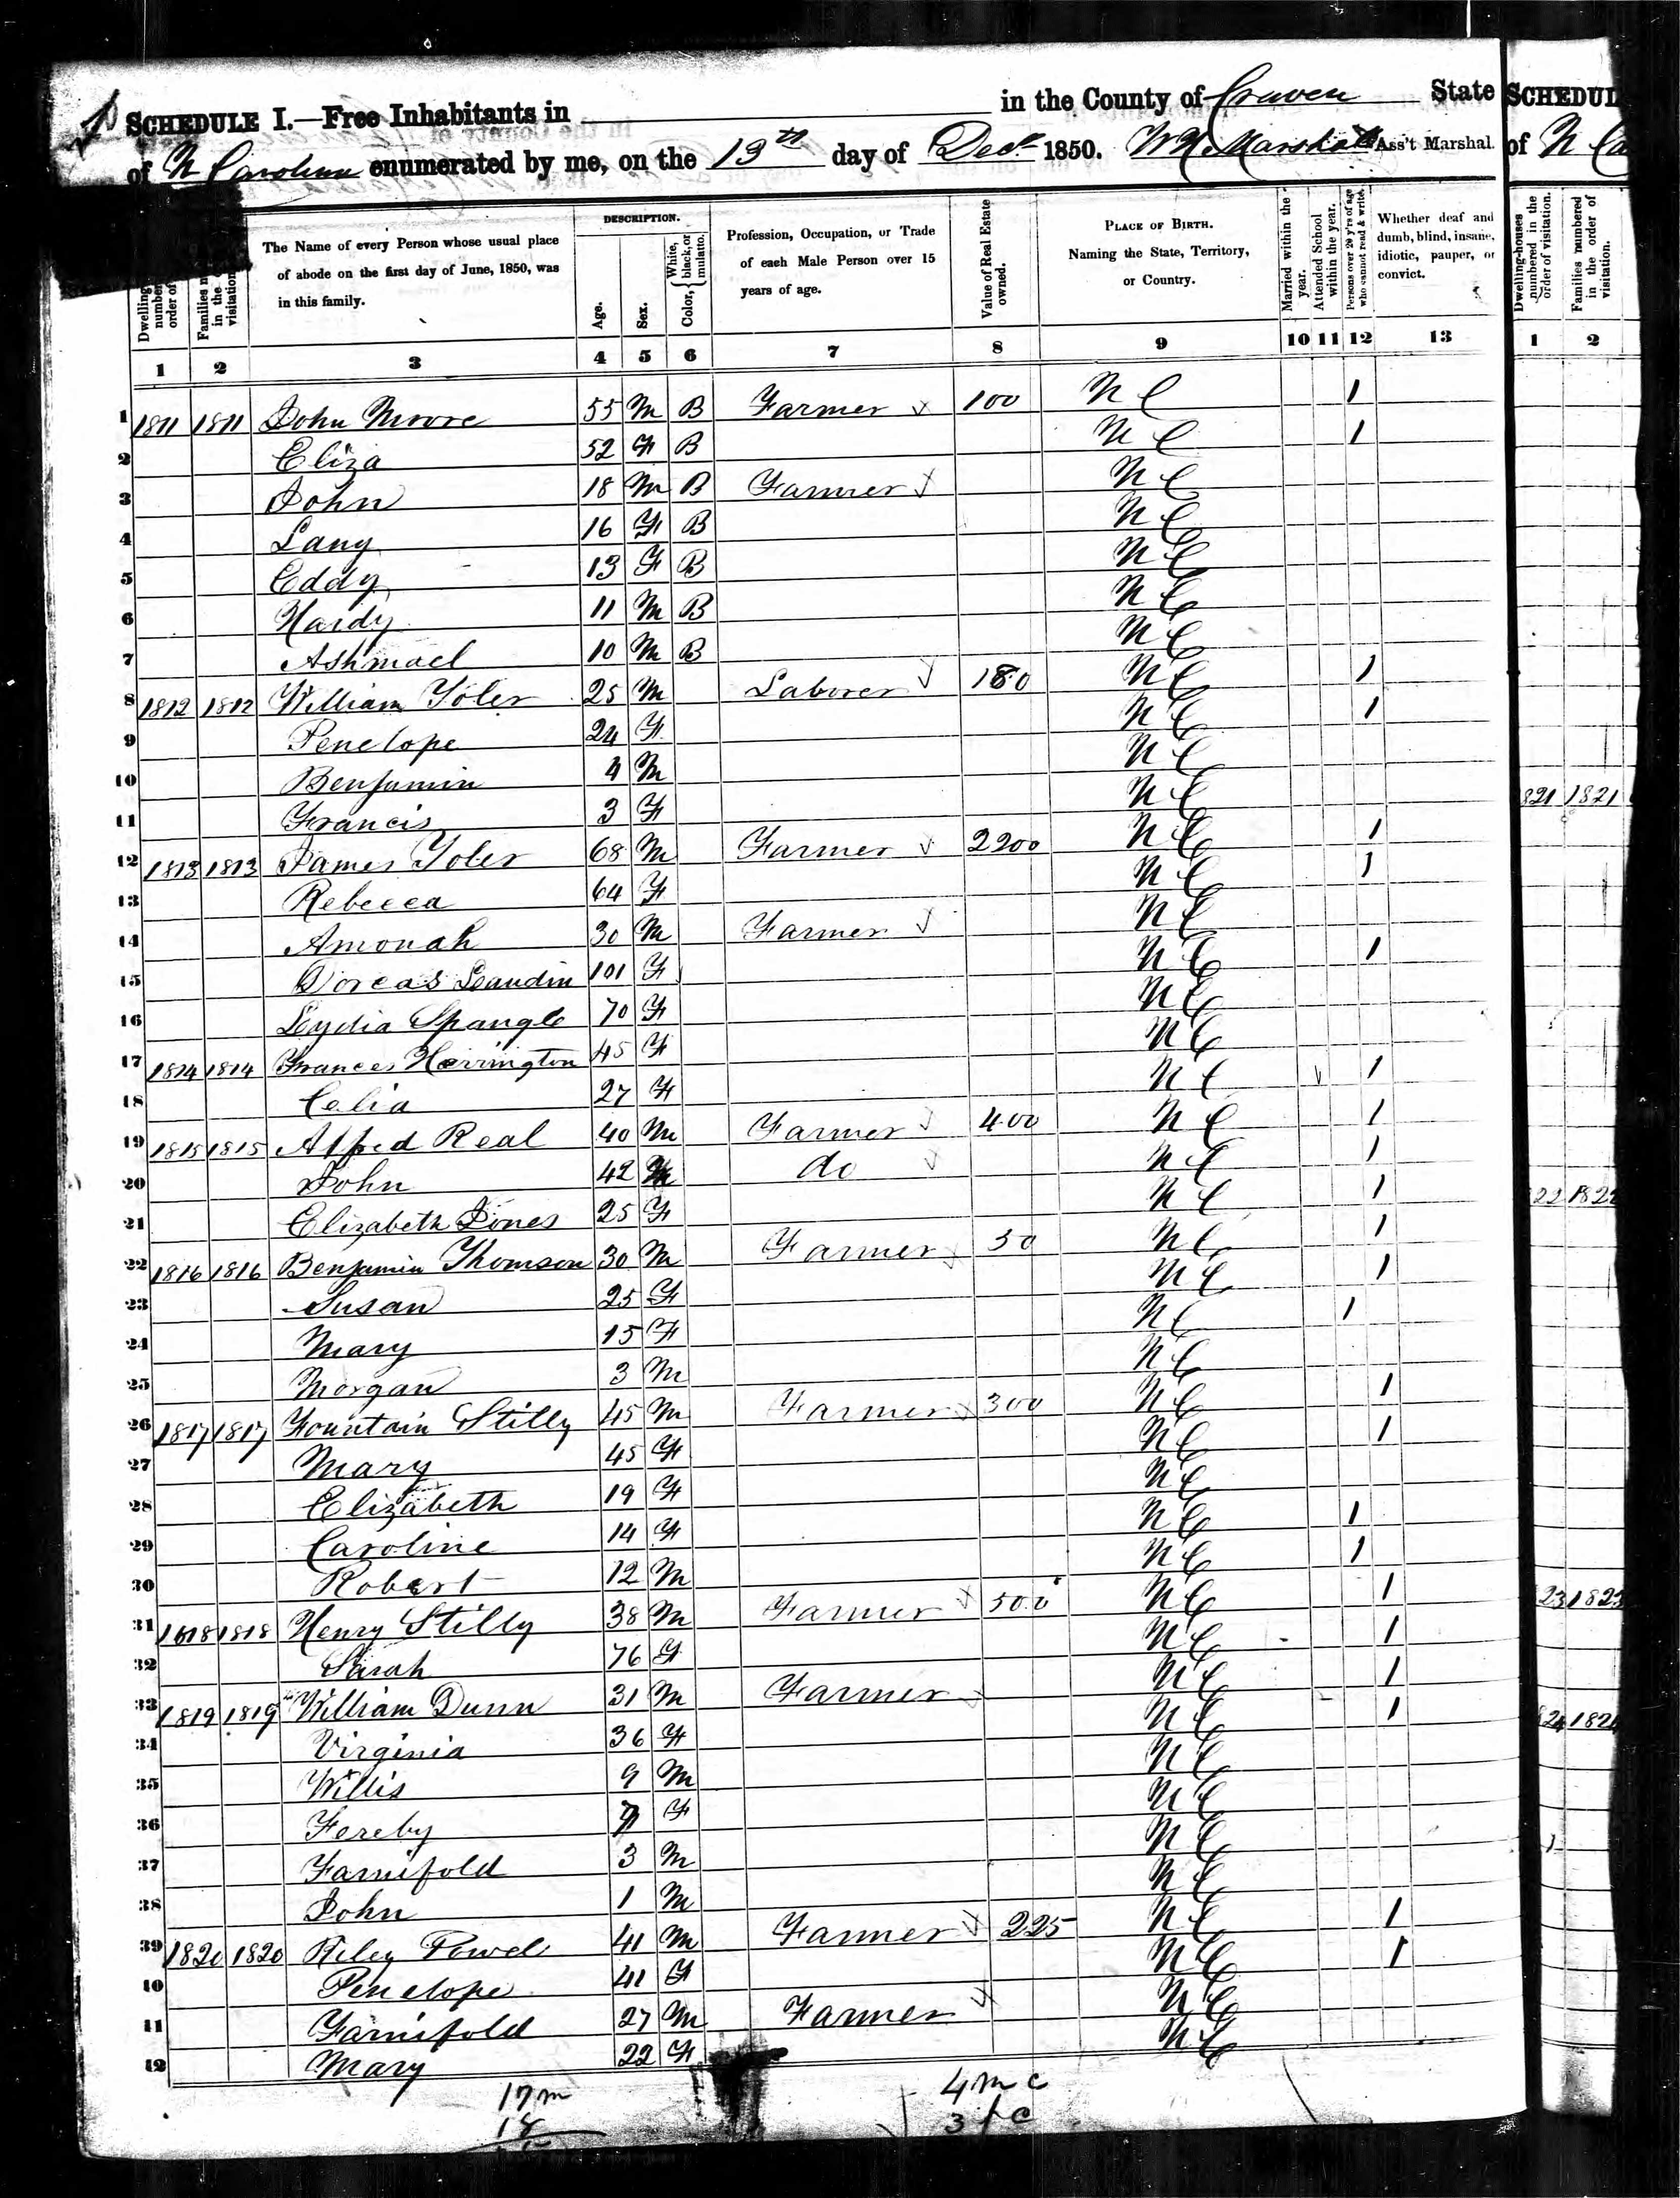 SCHEDULE I.—Free Inhabitants in in the County of Craven State
of N Carolina enumerated by me, on the 13th day of Dec 1850. Ass't Marshal.
The Name of every Person whose usual place of abode on the first day of June, 1850, was in this family.
DESCRIPTION.
Age. Sex. Color, White, black, or mulatto.
Profession, Occupation, or Trade of each Male Person over 15 years of age.
Value of Real Estate owned.
PLACE OF BIRTH. Naming the State, Territory, or Country.
Married within the year.
Attended School within the year.
Persons over 20 y'rs of age who cannot read & write.
Whether deaf and dumb, blind, insane, idiotic, pauper, or convict.
1 2 3 4 5 6 7 8 9 10 11 12 13
1 1811 1811 John Moore 55 M B Farmer 100 N C 1
2 Eliza 52 F B N C 1
3 John 18 M B Farmer N C
4 Lany 16 F B N C
5 Eddy 13 F B N C
6 Hardy 11 M B N C
7 Ashmael 10 M B N C
8 1812 1812 William Toler 25 M Laborer 180 N C 1
9 Penelope 24 F N C 1
10 Benjamin 4 M N C
11 Francis 3 F N C
12 1813 1813 James Toler 68 M Farmer 2200 N C 1
13 Rebecca 64 F N C 1
14 Amonah 30 M Farmer N C
15 Dorcas 101 F N C 1
16 Lydia Spangle 70 F N C
17 1814 1814 Frances Herrington 45 F N C
18 Celia 27 F N C 1
19 1815 1815 Alfred Real 40 M Farmer 400 N C 1
20 John 42 M do N C 1
21 Elizabeth Jones 25 F N C 1
22 1816 1816 Benjamin Thomson 30 M Farmer 50 N C 1
23 Susan 25 F N C 1
24 Mary 15 F N C 1
25 Morgan 3 M N C
26 1817 1817 Fountain Stilly 45 M Farmer 300 N C 1
27 Mary 45 F N C 1
28 Elizabeth 19 F N C
29 Caroline 14 F N C 1
30 Robert 12 M N C 1
31 1818 1818 Henry Stilly 38 M Farmer 500 N C 1
32 Sarah 76 F N C 1
33 1819 1819 William Dunn 31 M Farmer N C 1
34 Virginia 36 F N C 1
35 Willis 9 M N C
36 Fereby 7 F N C
37 Farnifold 3 M N C
38 John 1 M N C
39 1820 1820 Riley Powel 41 M Farmer 225 N C 1
40 Penelope 41 F N C 1
41 Farnifold 27 M Farmer N C
42 Mary 22 F N C
17 m
18
4 m c
3 f c
SCHEDUL
of N Ca
Dwelling-houses numbered in the order of visitation.
Families numbered in the order of visitation.
1 2
1821 1821
22 1822
23 1823
24 1824